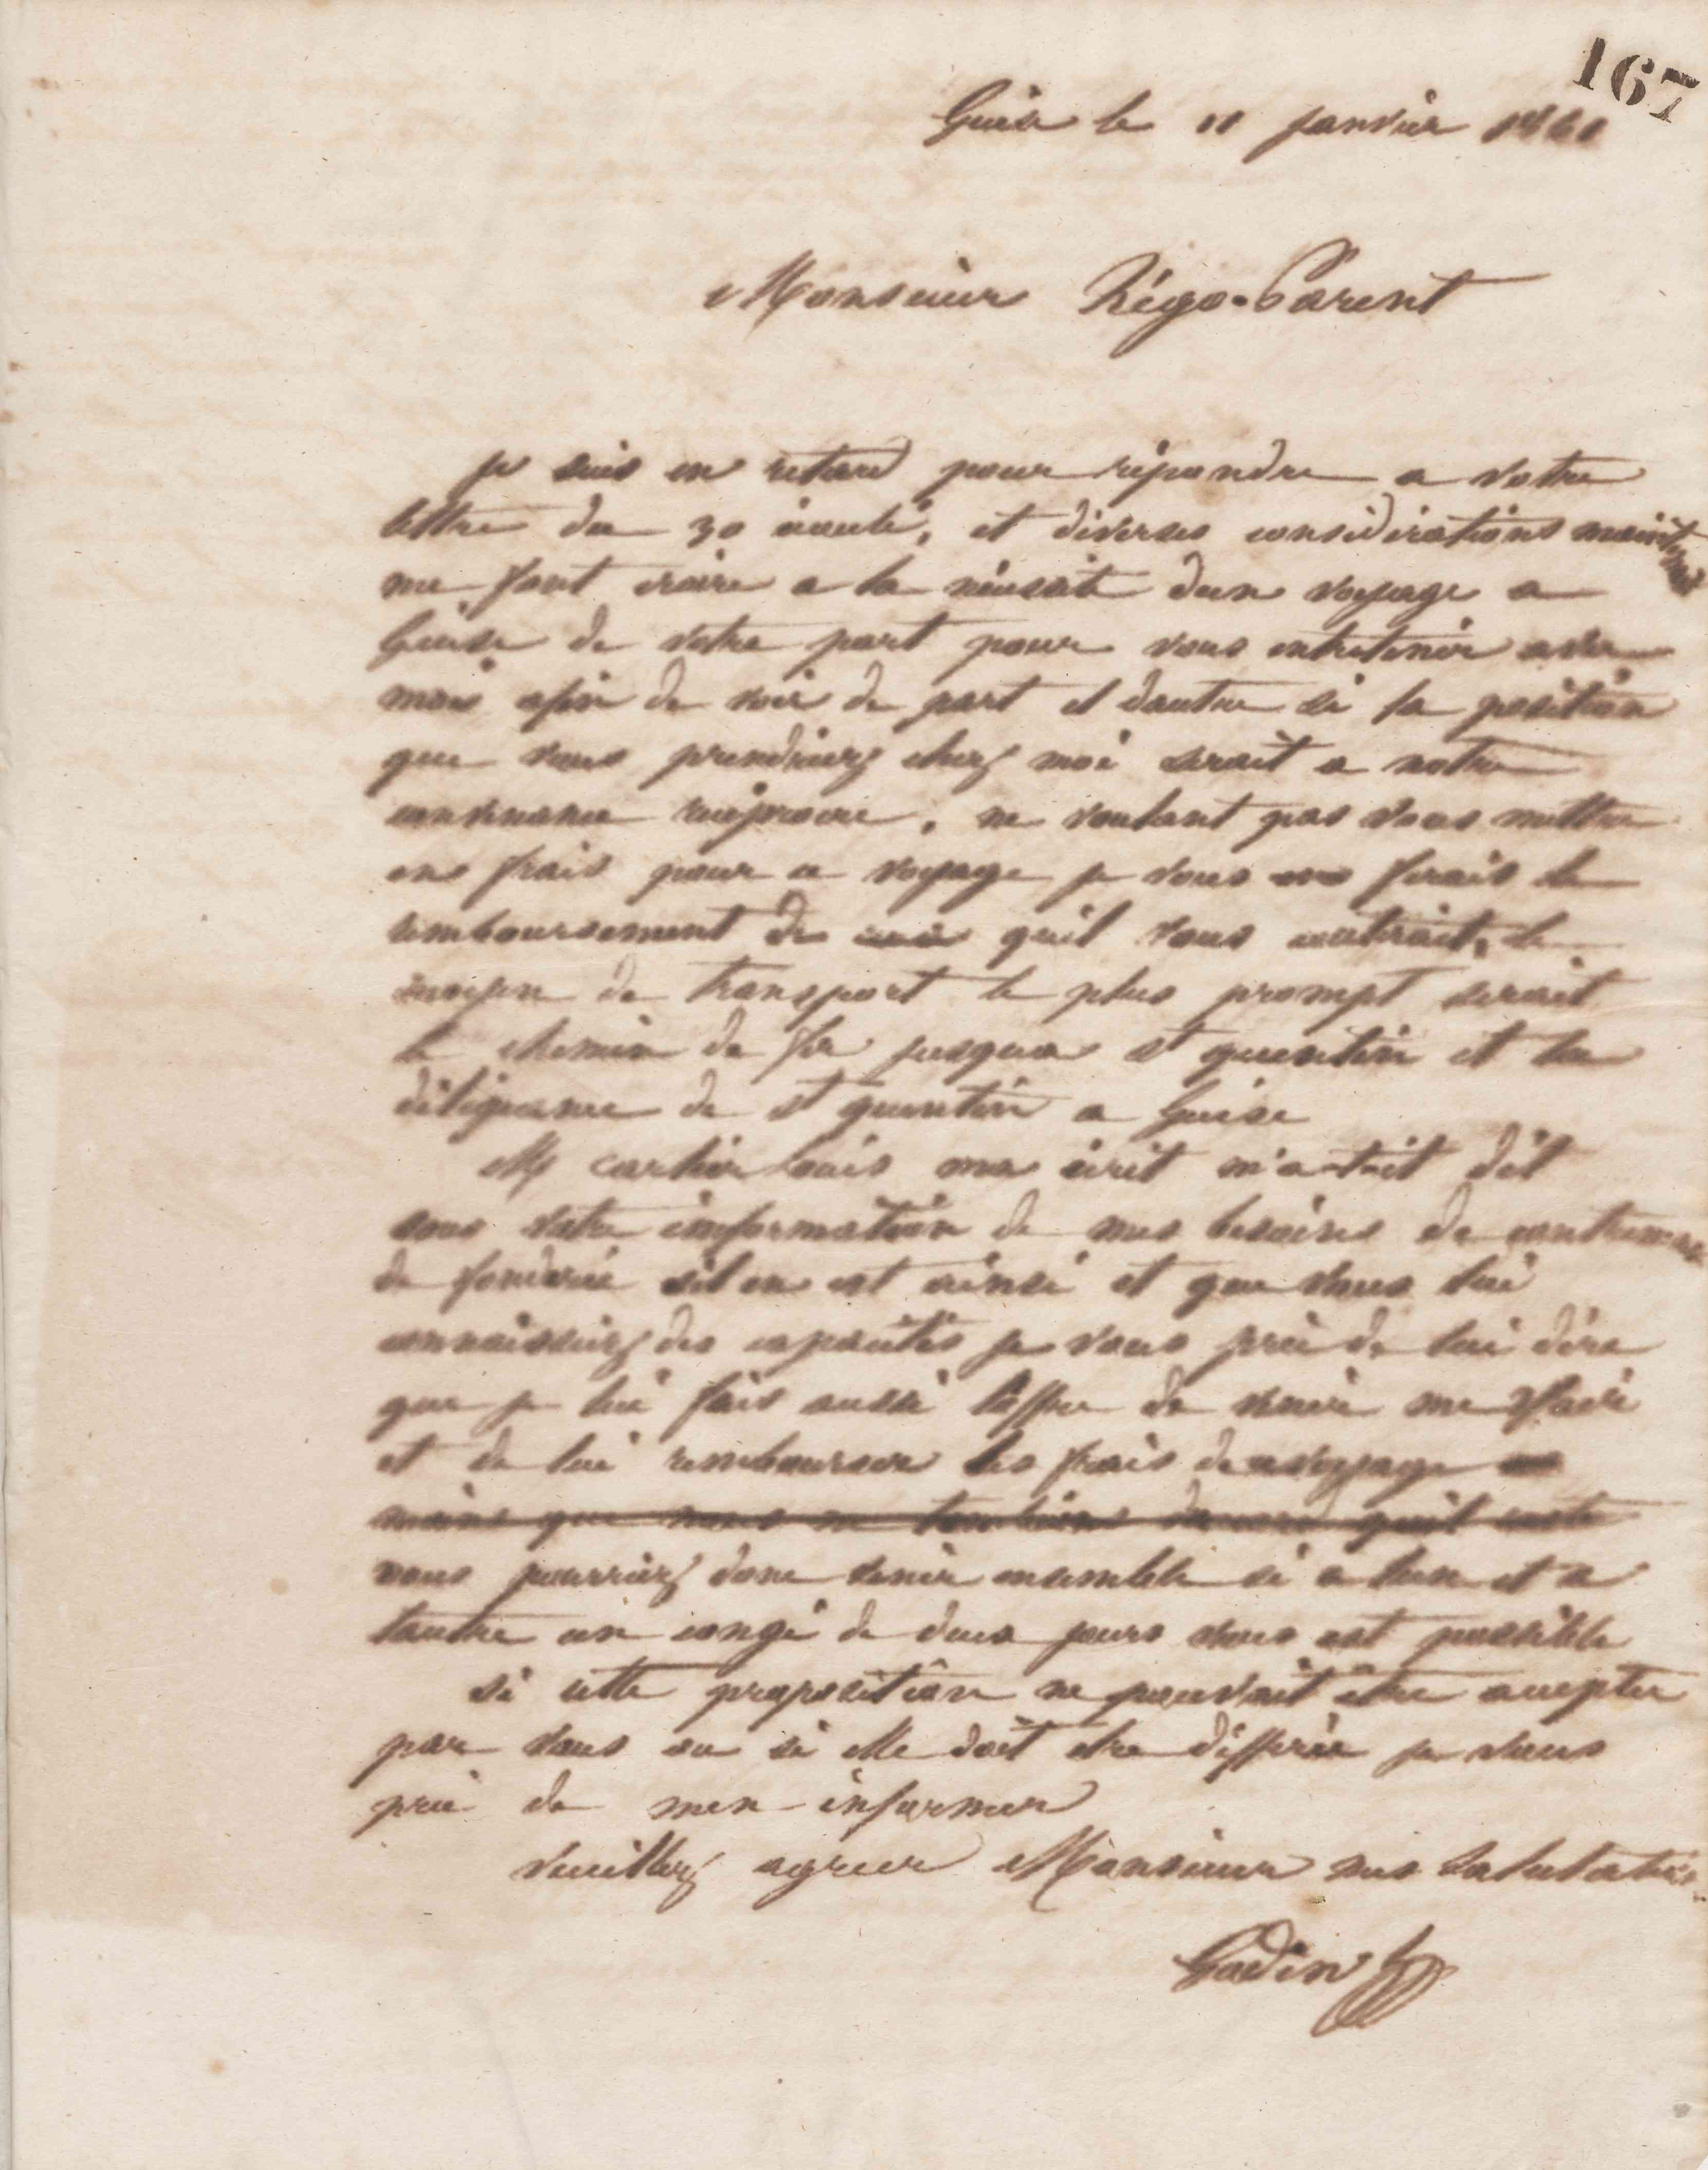 167
Guise le 11 janvier 1861
Monsieur Régo-Parent
je suis en retard pour répondre a votre
lettre du 30 écoulé, et diverses considérations maintenant
me font croire a la nécessité dun voyage a
Guise de votre part pour vous entretenir avec
moi afin de voir de part et dautre si la position
que vous prendriez chez moi serait a notre
convenance réciproque, ne voulant pas vous mettre
en frais pour ce voyage je vous ferais le
remboursement de ce quil vous coûterait, le
moyen de transport le plus prompt serait
le chemin de fer jusqua st quentin et la
diligence de st quentin a Guise
M cartier Louis ma écrit dit
sous votre information de mes besoins de contremaitre
de fonderie sil en est ainsi et que vous lui
connaissiez des capacités je vous prie de lui dire
que je lui fais aussi loffre de venir me voir
et de lui rembourser les frais de voyage
moins que nous ne tombions daccord quil
vous pourriez donc venir ensemble si a lun et a
lautre un congé de deux jours vous est possible
si cette proposition ne pouvait être accepter
par vous ou si elle doit etre différée je vous
prie de men informer
veuillez agreer Monsieur mes salutations
Godin